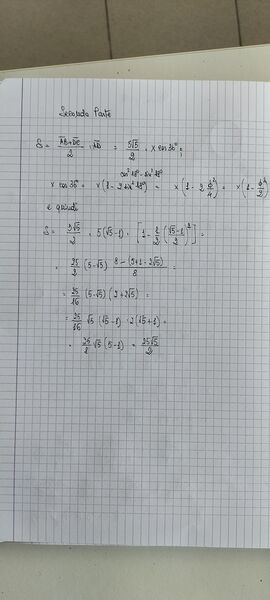 Seconda Parte
S = (AB+DC)/2 · AD = 5√5/2 · x cos 36° ;
cos² 18° - sin² 18°
x cos 36° = x (1 - 2 sin² 18°) = x (1 - 2 ϕ²/4) = x (1 - ϕ²/2)
e quindi
S = 5√5/2 · 5(√5-1) · [1 - 1/2 (√5-1/2)²] =
= 25/2 (5-√5) 8-(5+1-2√5)/8 =
= 25/16 (5-√5) (2+2√5) =
= 25/16 √5 (√5-1) · 2(√5+1) =
= 25/8 √5 (5-1) = 25√5/2